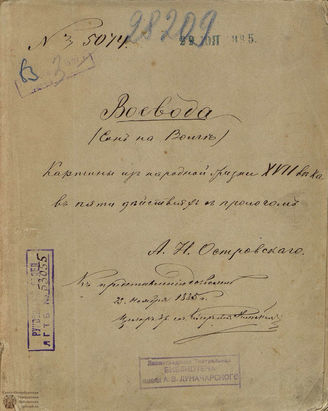 № 3 5074
28209
В 3
Воевода
(Сонъ на Волгѣ)
Картины изъ народной жизни XVII вѣка
въ пяти дѣйствіяхъ съ прологомъ
А. Н. Островскаго.
Къ представленію дозволено
22 ноября 1885 г.
РУКОП. ОТД.
ЛГТБ № 53055
Ленинградская Театральная
БИБЛИОТЕКА
имени А. В. ЛУНАЧАРСКОГО